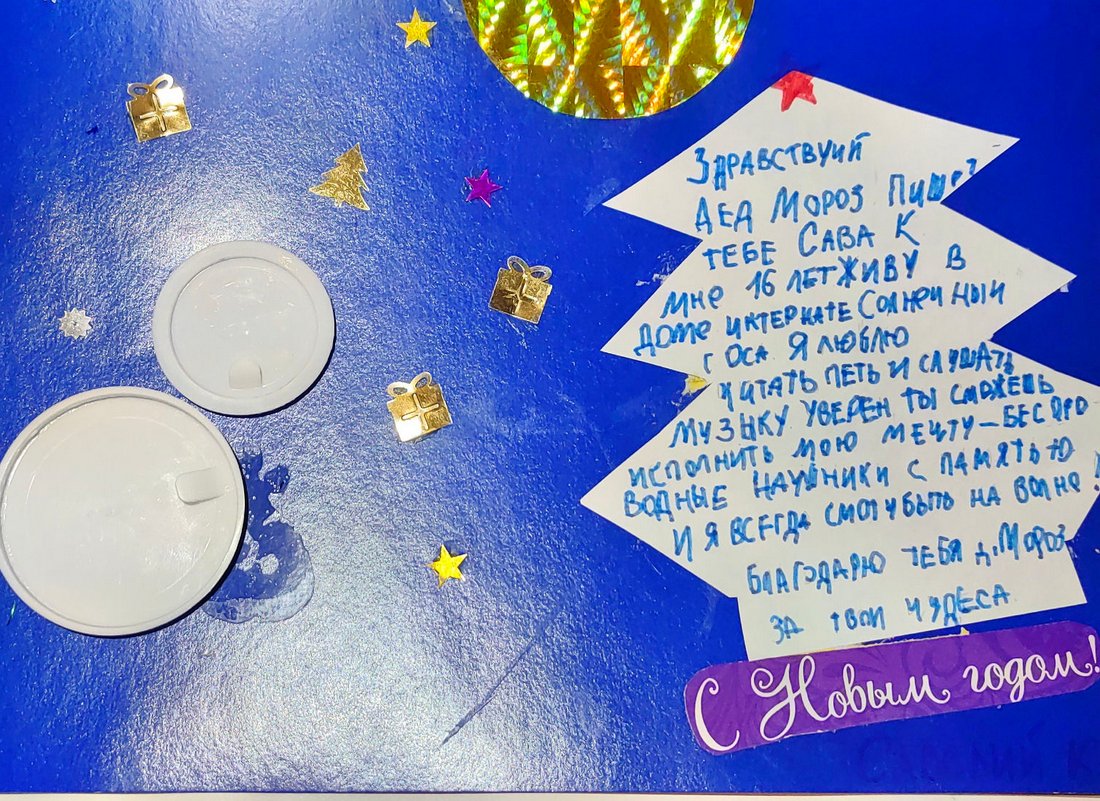 ЗДРАВСТВУЙ
ДЕД МОРОЗ ПИШЕТ
ТЕБЕ САВА К
МНЕ 16 ЛЕТ ЖИВУ В
ДОМЕ ИНТЕРНАТЕ СОЛНЕЧНЫЙ
Г ОСА Я ЛЮБЛЮ
ЧИТАТЬ ПЕТЬ И СЛУШАТЬ
МУЗЫКУ УВЕРЕН ТЫ СМОЖЕШЬ
ИСПОЛНИТЬ МОЮ МЕЧТУ – БЕСПРО
ВОДНЫЕ НАУШНИКИ С ПАМЯТЬЮ
И Я ВСЕГДА СМОГУ БЫТЬ НА ВОЛНЕ!
БЛАГОДАРЮ ТЕБЯ Д. МОРОЗ
ЗА ТВОИ ЧУДЕСА
С Новым годом!